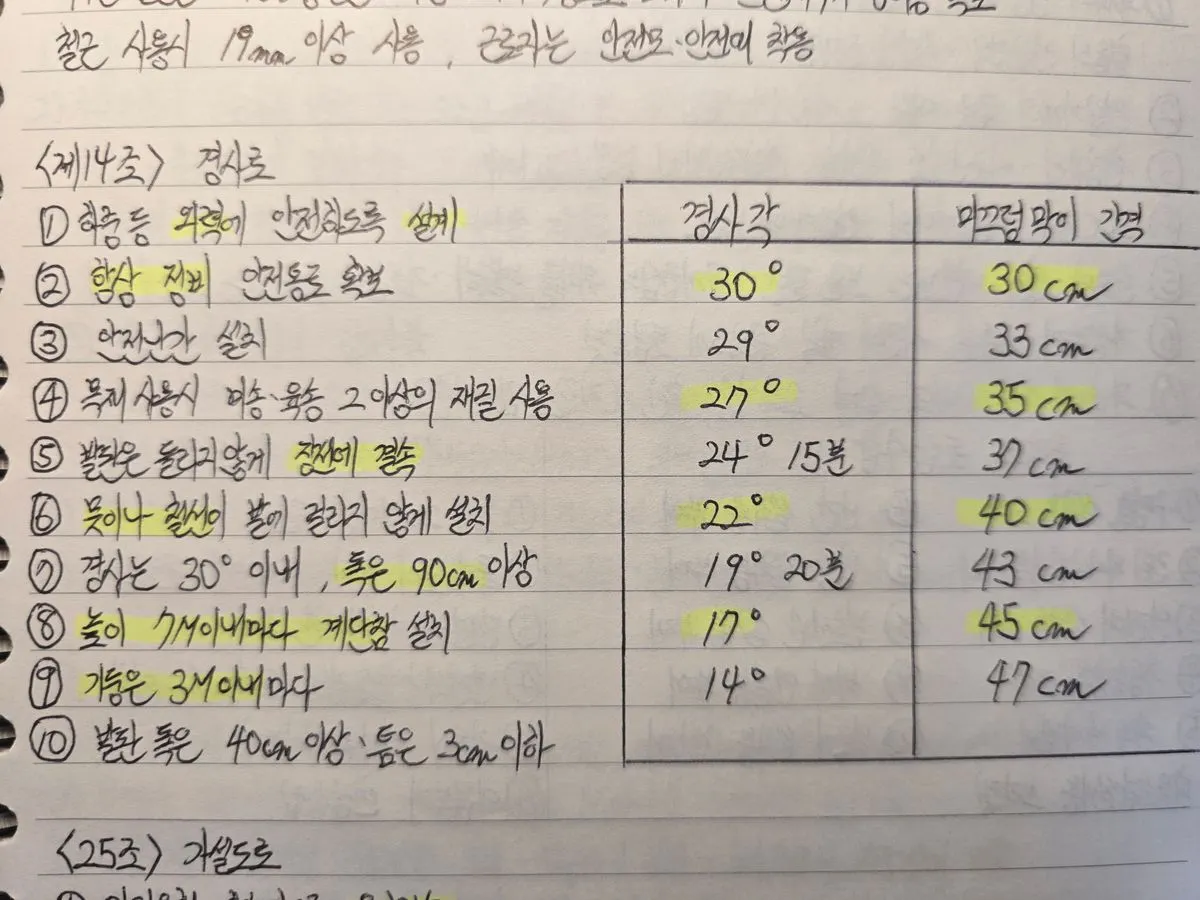 철근 사용시 19mm 이상 사용, 근로자는 안전모·안전대 착용
<제14조> 경사로
① 하중 등 외력에 안전하도록 설계
② 항상 정비 안전통로 확보
③ 안전난간 설치
④ 목재 사용시 미송·육송 2이상의 재질 사용
⑤ 발판은 돌리지않게 장선에 결속
⑥ 못이나 철선이 발에 걸리지 않게 설치
⑦ 경사는 30° 이내, 폭은 90cm 이상
⑧ 높이 7M이내마다 계단참 설치
⑨ 기둥은 3M이내마다
⑩ 발판 폭은 40cm이상·틈은 3cm이하
경사각 미끄럼막이 간격
30° 30cm
29° 33cm
27° 35cm
24° 15분 37cm
22° 40cm
19° 20분 43cm
17° 45cm
14° 47cm
<25조> 가설도로